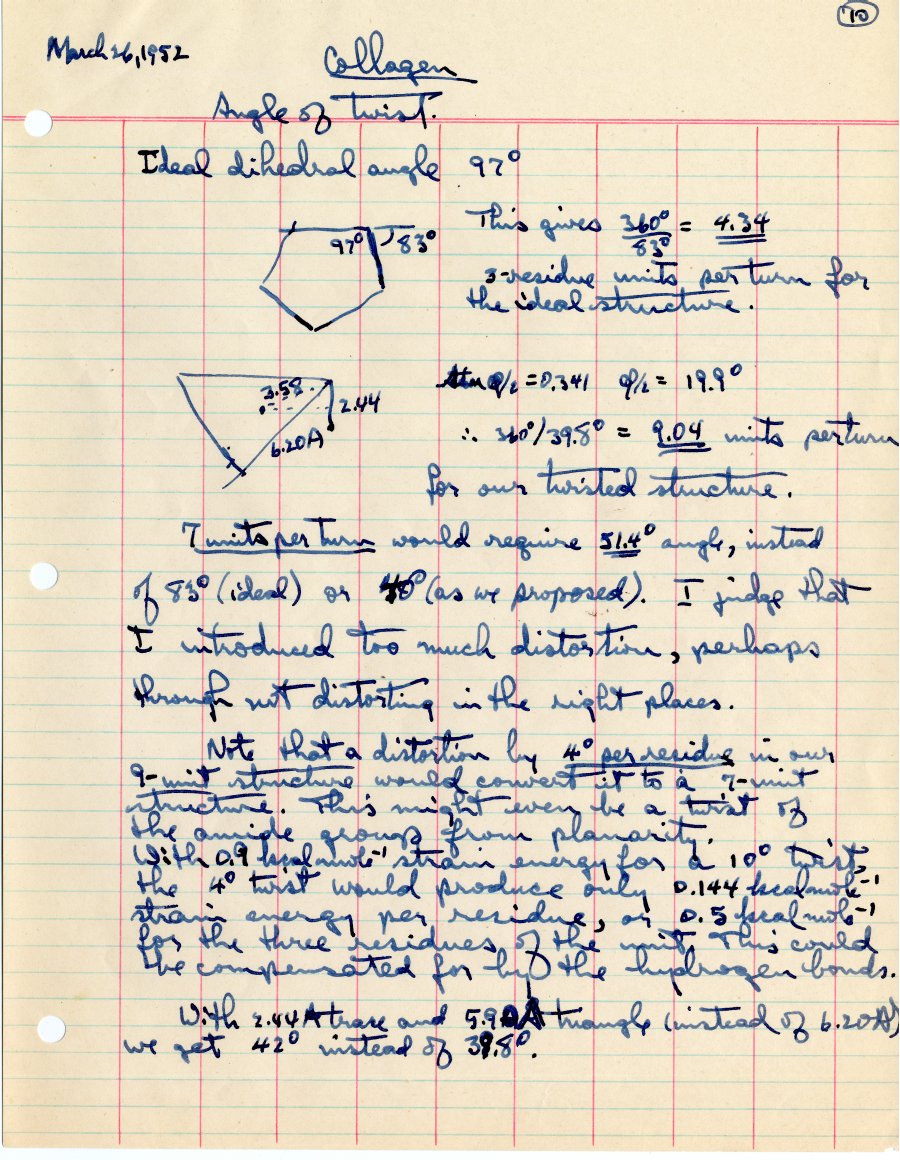 70
March 26, 1952
Collagen
Angle of twist.
Ideal dihedral angle 97°
97° 83°
This gives 360°/83° = 4.34
3-residue units per turn for
the ideal structure.
3.58
2.44
6.20A
tan φ/2 = 0.341 φ/2 = 19.9°
∴ 360°/39.8° = 9.04 units per turn
for our twisted structure.
7 units per turn would require 51.4° angle, instead
of 83° (ideal) or 40° (as we proposed). I judge that
I introduced too much distortion, perhaps
through not distorting in the right places.
Note that a distortion by 4° per residue in our
9-unit structure would convert it to a 7-unit
structure. This might even be a twist of
the amide groups from planarity.
With 0.9 kcal mole⁻¹ strain energy for a 10° twist,
the 4° twist would produce only 0.144 kcal mole⁻¹
strain energy per residue, or 0.5 kcal mole⁻¹
for the three residues of the unit. This could
be compensated for by the hydrogen bonds.
With 2.44A and 5.90A triangle (instead of 6.20A)
we get 42° instead of 39.8°.